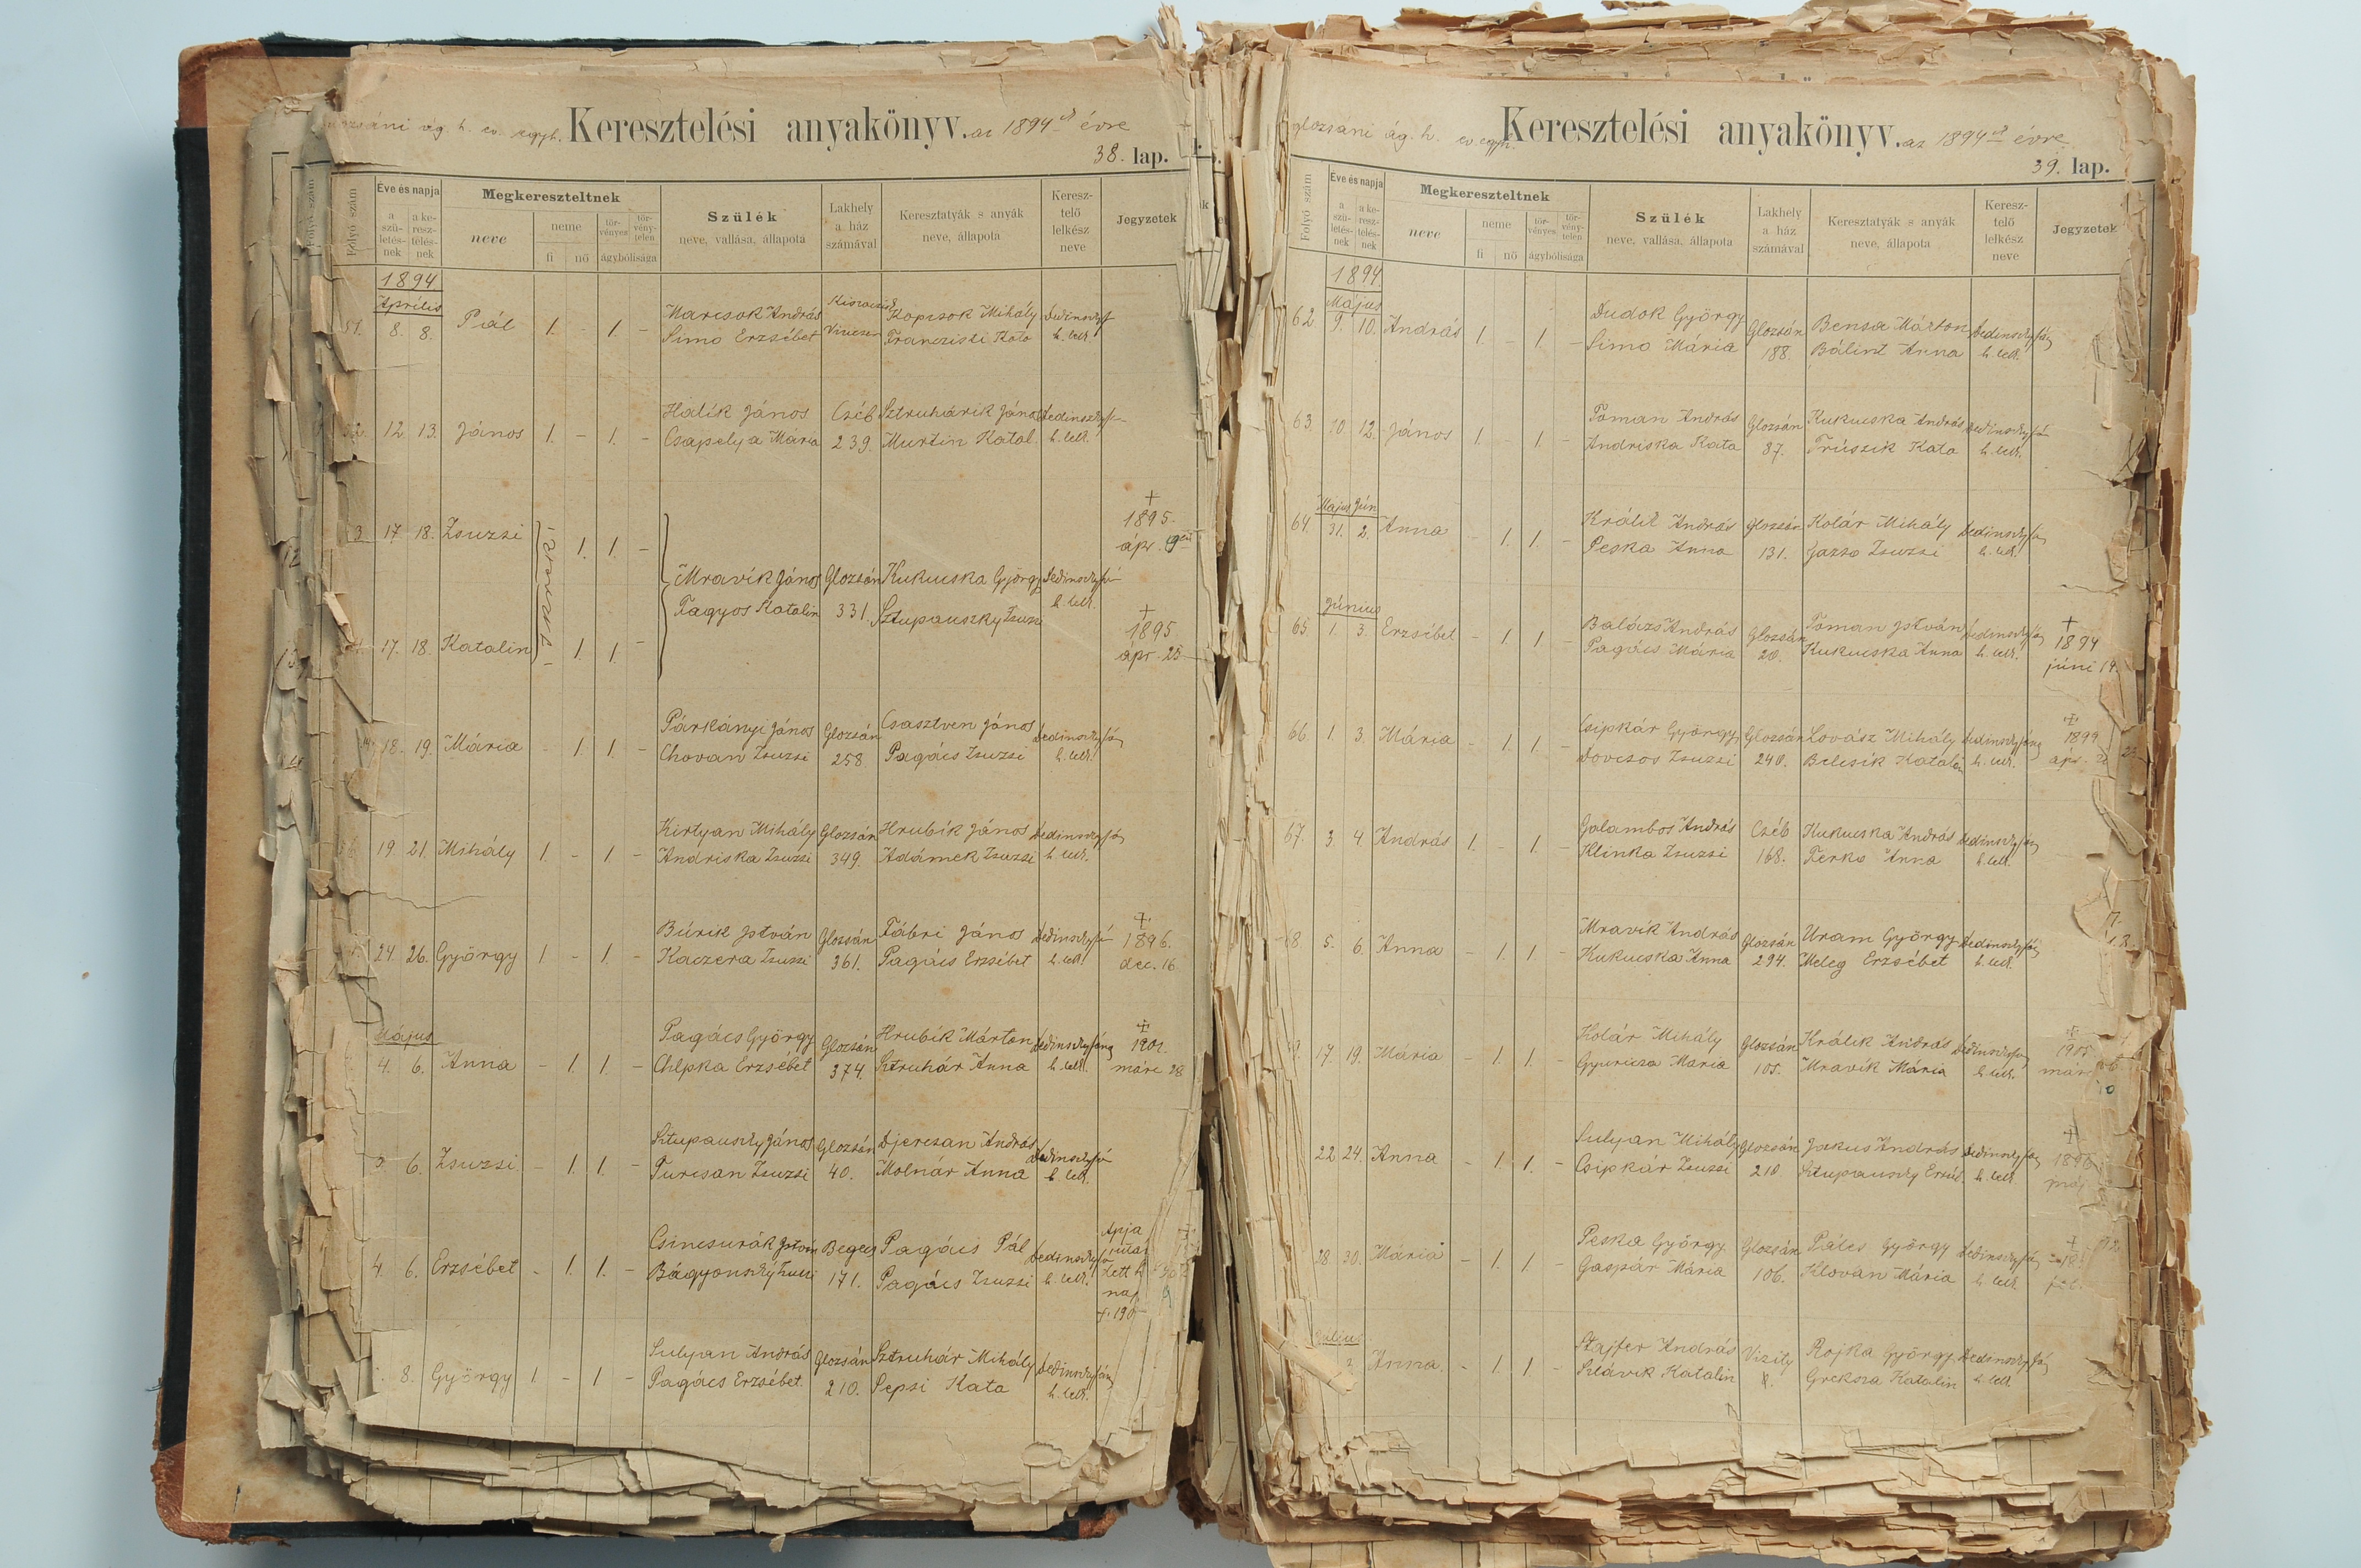 ág. h. ev. egyh. Keresztelési anyakönyv. az 1894 ik évre
38. lap.
Folyó szám
Éve és napja
a születésnek
a keresztelésnek
Megkereszteltnek
neve
neme
fi nő
törvényes törvénytelen
ágybólisága
Szülék
neve, vallása, állapota
Lakhely
a ház
számával
Keresztatyák s anyák
neve, állapota
Keresz-
telő
lelkész
neve
Jegyzetek
1894
Április
51. 8. 8. Pál 1. - 1. - Marcsok András Kopcsok Mihály
Simo Erzsébet Francziszti Kato h. lelk.
12. 13. János 1. - 1. - Halík János Czéb Sztruhárik János
Csapelya Mária 239. Murtin Katal. h. lelk.
3 17. 18. Zsuzsi - 1. 1. - + 1895. ápr. 9
Mravík János Glozsán Kukucska György
Fagyos Katalin 331. Sztupauszky Zsuzsi h. lelk.
17. 18. Katalin - 1. 1. - + 1895 ápr. 28
18. 19. Mária - 1. 1. - Párkányi János Glozsán Csasztven János
Chovan Zsuzsi 258 Pagács Zsuzsi h. lelk.
19. 21. Mihály 1. - 1. - Kirtyan Mihály Glozsán Hrubík János
Andriska Zsuzsi 349. Adámek Zsuzsi h. lelk.
24. 26. György 1 - 1. - Búrik István Glozsán Fábri János + 1896.
Kaczera Zsuzsi 361. Pagács Erzsébet h. lelk. dec. 16
Május
4. 6. Anna - 1. 1. - Pagács György Glozsán Hrubík Márton +
Chlpka Erzsébet 374. Sztruhár Anna h. lelk. márc 28
6. Zsuzsi - 1. 1. - Sztupauszky János Glozsán Djercsan András
Turcsan Zsuzsi 40. Molnár Anna h. lelk.
4. 6. Erzsébet - 1. 1. - Csincsurák István Begecs Pagács Pál Apja
171. Pagács Zsuzsi h. lelk.
8. György 1 - 1 - Sulyan András Glozsán Sztruhár Mihály
Pagács Erzsébet. 210. Sepsi Kata h. lelk.
glozsáni ág. h. ev. egyh. Keresztelési anyakönyv. az 1894 ik évre
39. lap.
Folyó szám
Éve és napja
a születésnek
a keresztelésnek
Megkereszteltnek
neve
neme
fi nő
törvényes törvénytelen
ágybólisága
Szülék
neve, vallása, állapota
Lakhely
a ház
számával
Keresztatyák s anyák
neve, állapota
Keresz-
telő
lelkész
neve
Jegyzetek
1894
Május
62 9. 10. András 1. - 1. - Dudok György Glozsán Bensa Márton
Simo Mária 188. Bálint Anna h. lelk.
63. 10 12. János 1 - 1. - Toman András Glozsán Kukucska András
Andriska Kata 87. Trúszik Kata h. lelk.
Május Jún
64 31. 2. Anna - 1. 1. - Králik András Glozsán Kolár Mihály
Peska Anna 131. Jazso Zsuzsi h. lelk.
Június
65 1. 3. Erzsébet - 1 1. - Balázs András Glozsán Toman István + 1894
Pagács Mária 20. Kukucska Anna h. lelk. júni 19.
66. 1. 3. Mária - 1. 1. - Csipkár György Glozsán Lovász Mihály + 1899
Dovcsos Zsuzsi 240. Belicsik Katalin h. lelk. ápr.
67. 3 4. András 1. - 1. - Galambos András Czéb Kukucska András
Klinka Zsuzsi 168. Ferko Anna h. lelk.
68. 5. 6. Anna - 1. 1. - Mravík András Glozsán Uram György
Kukucska Anna 294. Meleg Erzsébet h. lelk.
17. 19. Mária - 1. 1. - Kolár Mihály Glozsán Králik András + 1905
Gyuricza Mária 105. Mravík Mária h. lelk. márc
22. 24. Anna - 1. 1. - Sulyan Mihály Glozsán Jakus András + 1896
Csipkár Zsuzsi 210 Sztupauszky Erzséb. h. lelk. máj
28 30. Mária - 1. 1. - Peska György Glozsán Pálcs György +
Gaspár Mária 106. Klovan Mária h. lelk.
Július
Anna - 1. 1 - Stajfer András Rojka György
Szlávik Katalin Greksza Katalin h. lelk.